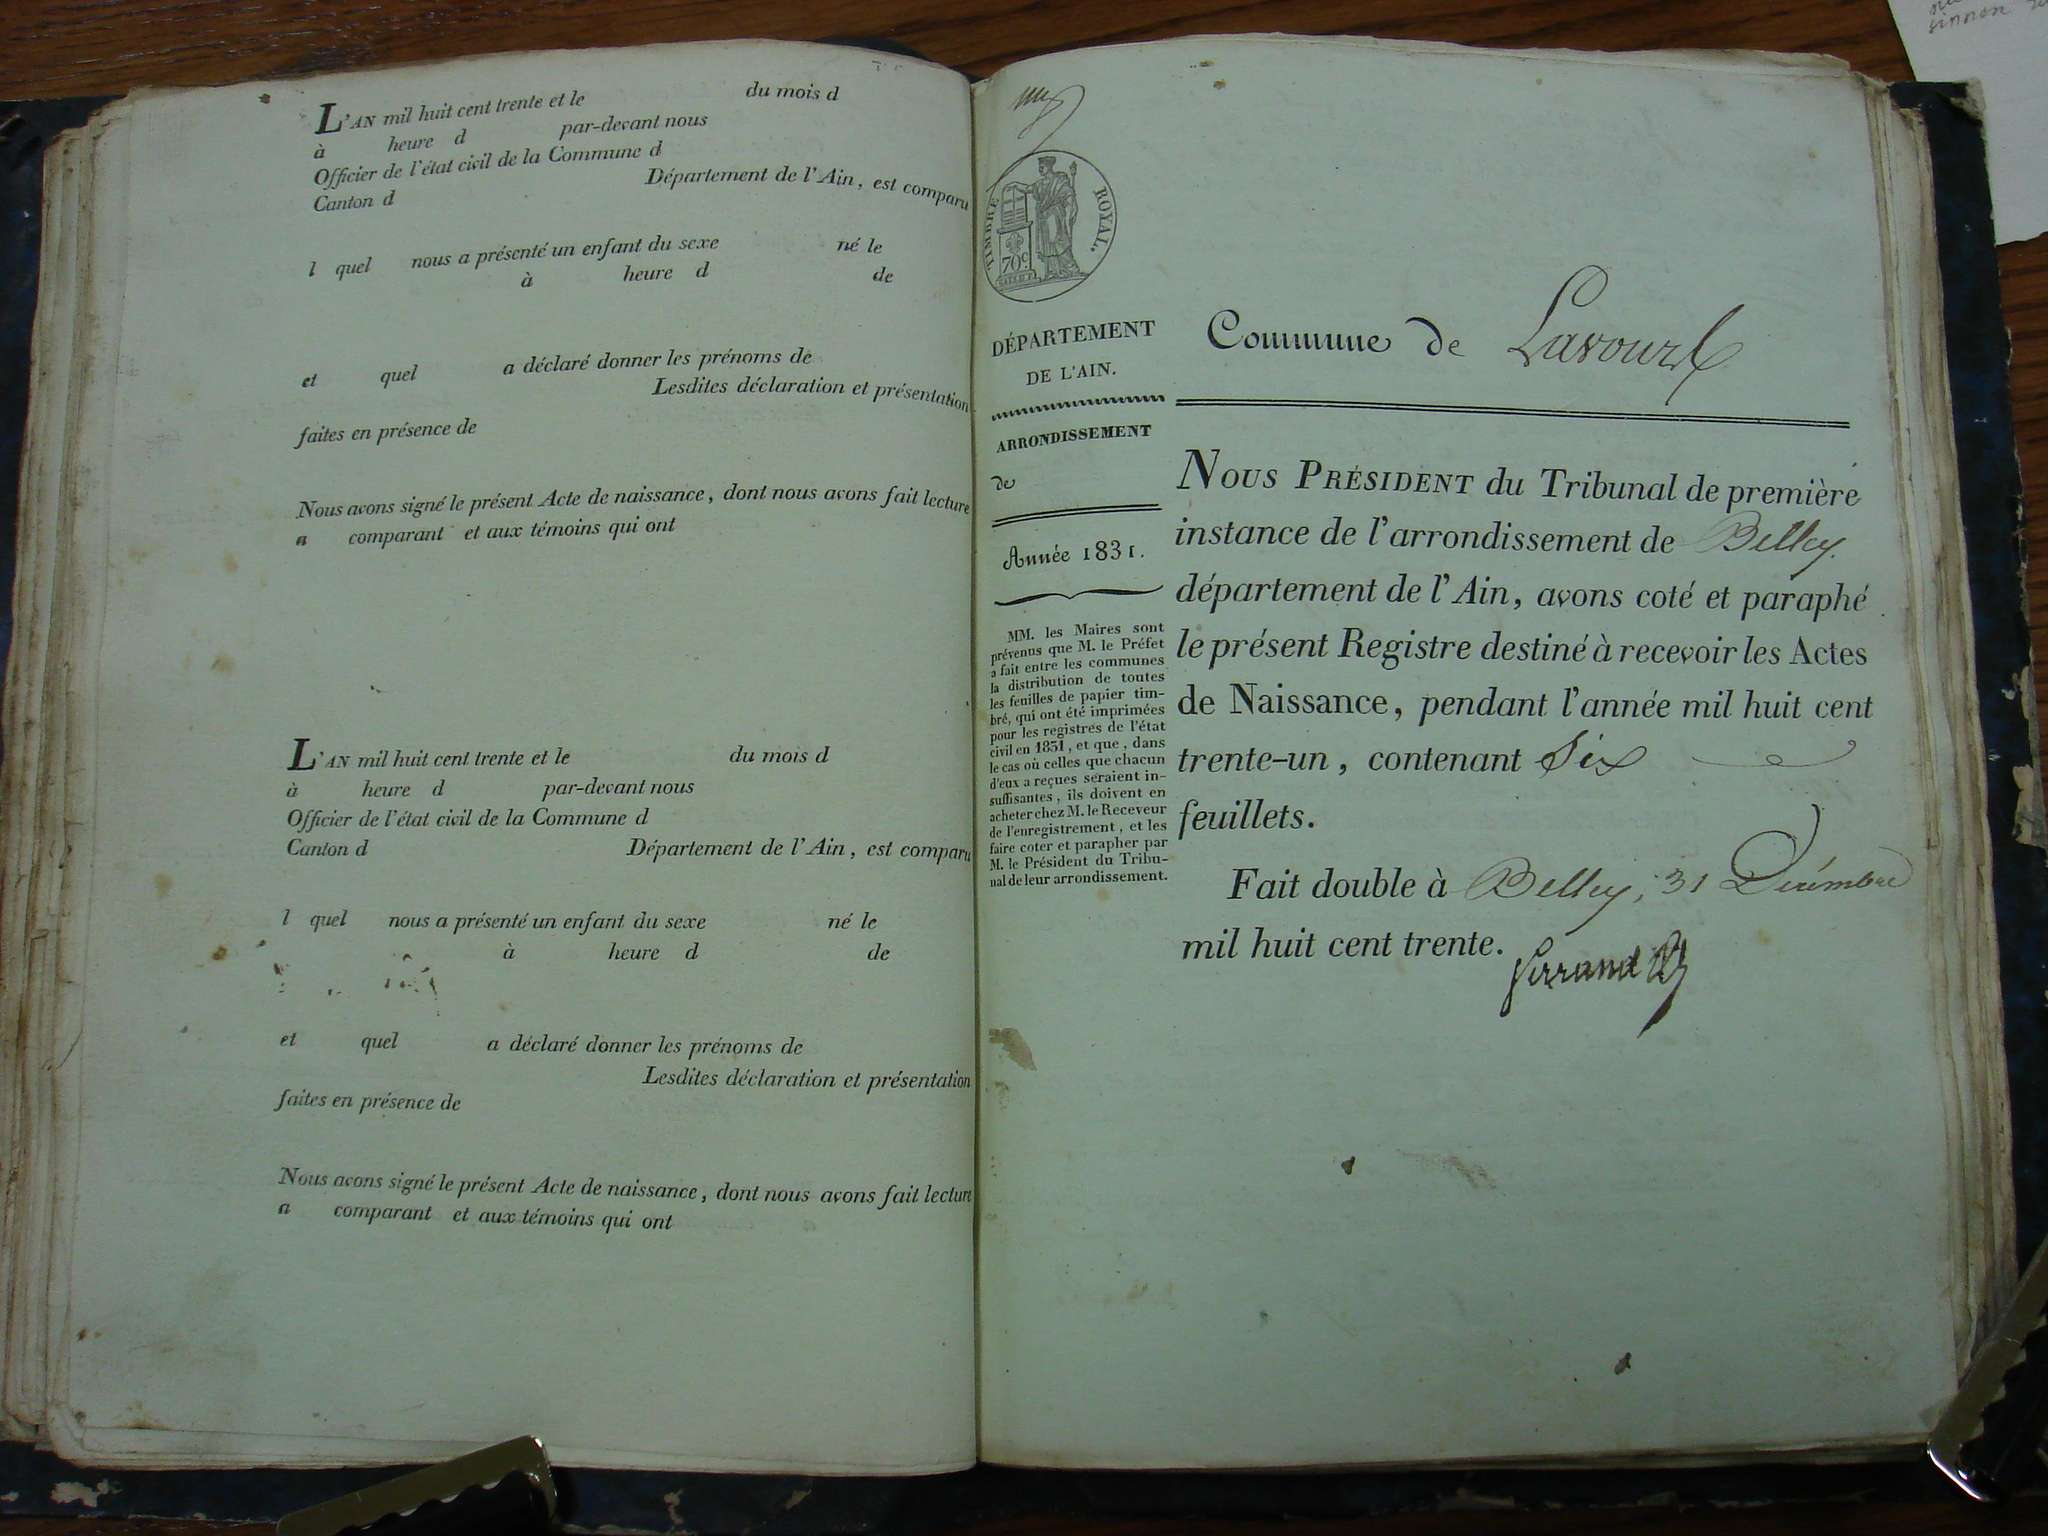 L'AN mil huit cent trente et le du mois d
à heure d par-devant nous
Officier de l'état civil de la Commune d
Canton d Département de l'Ain, est comparu
l quel nous a présenté un enfant du sexe né le
à heure d de
et quel a déclaré donner les prénoms de
Lesdites déclaration et présentation
faites en présence de
Nous avons signé le présent Acte de naissance, dont nous avons fait lecture
a comparant et aux témoins qui ont
L'AN mil huit cent trente et le du mois d
à heure d par-devant nous
Officier de l'état civil de la Commune d
Canton d Département de l'Ain, est comparu
l quel nous a présenté un enfant du sexe né le
à heure d de
et quel a déclaré donner les prénoms de
Lesdites déclaration et présentation
faites en présence de
Nous avons signé le présent Acte de naissance, dont nous avons fait lecture
a comparant et aux témoins qui ont
TIMBRE ROYAL.
70c
DÉPARTEMENT
DE L'AIN.
ARRONDISSEMENT
de
Année 1831.
MM. les Maires sont
prévenus que M. le Préfet
a fait entre les communes
la distribution de toutes
les feuilles de papier tim-
bré, qui ont été imprimées
pour les registres de l'état
civil en 1831, et que, dans
le cas où celles que chacun
d'eux a reçues seraient in-
suffisantes, ils doivent en
acheter chez M. le Receveur
de l'enregistrement, et les
faire coter et parapher par
M. le Président du Tribu-
nal de leur arrondissement.
Commune de Lavours
NOUS PRÉSIDENT du Tribunal de première
instance de l'arrondissement de Belley
département de l'Ain, avons coté et paraphé
le présent Registre destiné à recevoir les Actes
de Naissance, pendant l'année mil huit cent
trente-un, contenant Six
feuillets.
Fait double à Belley, 31 Décembre
mil huit cent trente.